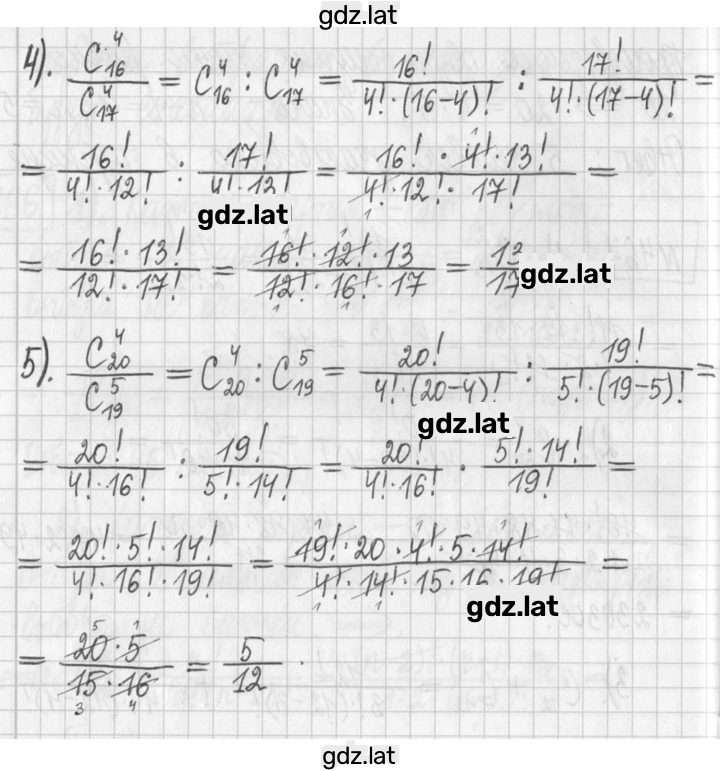 gdz.lat
4). C⁴₁₆ / C⁴₁₇ = C⁴₁₆ : C⁴₁₇ = 16! / 4!·(16-4)! : 17! / 4!·(17-4)! =
= 16! / 4!·12! : 17! / 4!·12! = 16!·4!·13! / 4!·12!·17! =
gdz.lat
= 16!·13! / 12!·17! = 16!·12!·13 / 12!·16!·17 = 13 / 17
gdz.lat
5). C⁴₂₀ / C⁵₁₉ = C⁴₂₀ : C⁵₁₉ = 20! / 4!·(20-4)! : 19! / 5!·(19-5)! =
gdz.lat
= 20! / 4!·16! : 19! / 5!·14! = 20! / 4!·16! · 5!·14! / 19! =
= 20!·5!·14! / 4!·16!·19! = 19!·20·4!·5·14! / 4!·14!·15·16·19! =
gdz.lat
= 20·5 / 15·16 = 5 / 12
gdz.lat